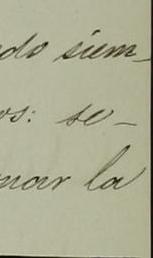 ndo siem-
os: se-
nar la